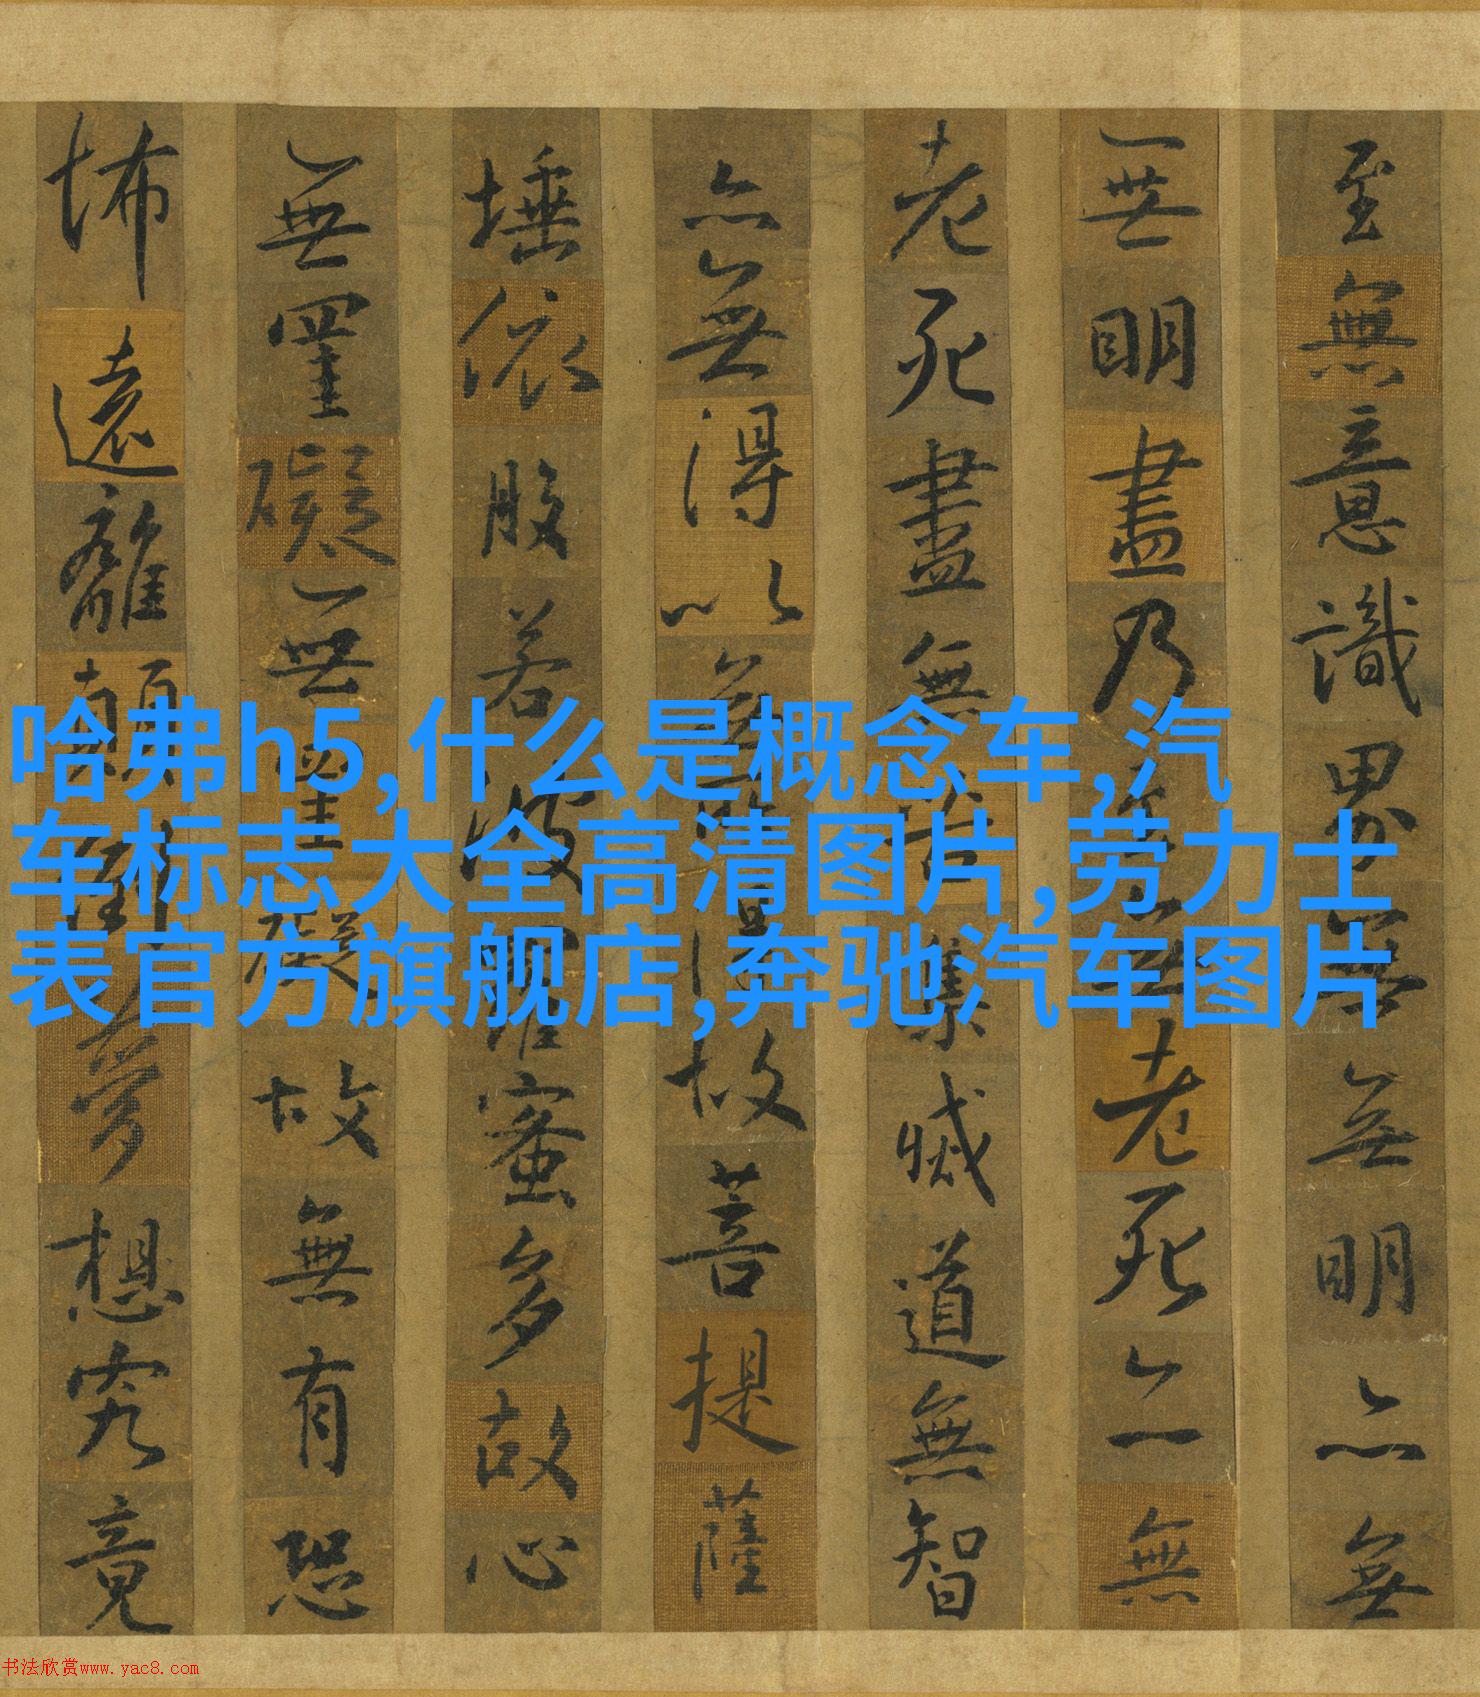 至無意識界無無明亦無
無明盡乃至無老死亦無
老死盡無苦集滅道無智
亦無得以無所得故菩提薩
埵依般若波羅蜜多故心
無罣礙無罣礙故無有恐
怖遠離顛倒夢想究竟
哈弗h5,什么是概念车,汽
车标志大全高清图片,劳力士
表官方旗舰店,奔驰汽车图片
书法欣赏www.yac8.com